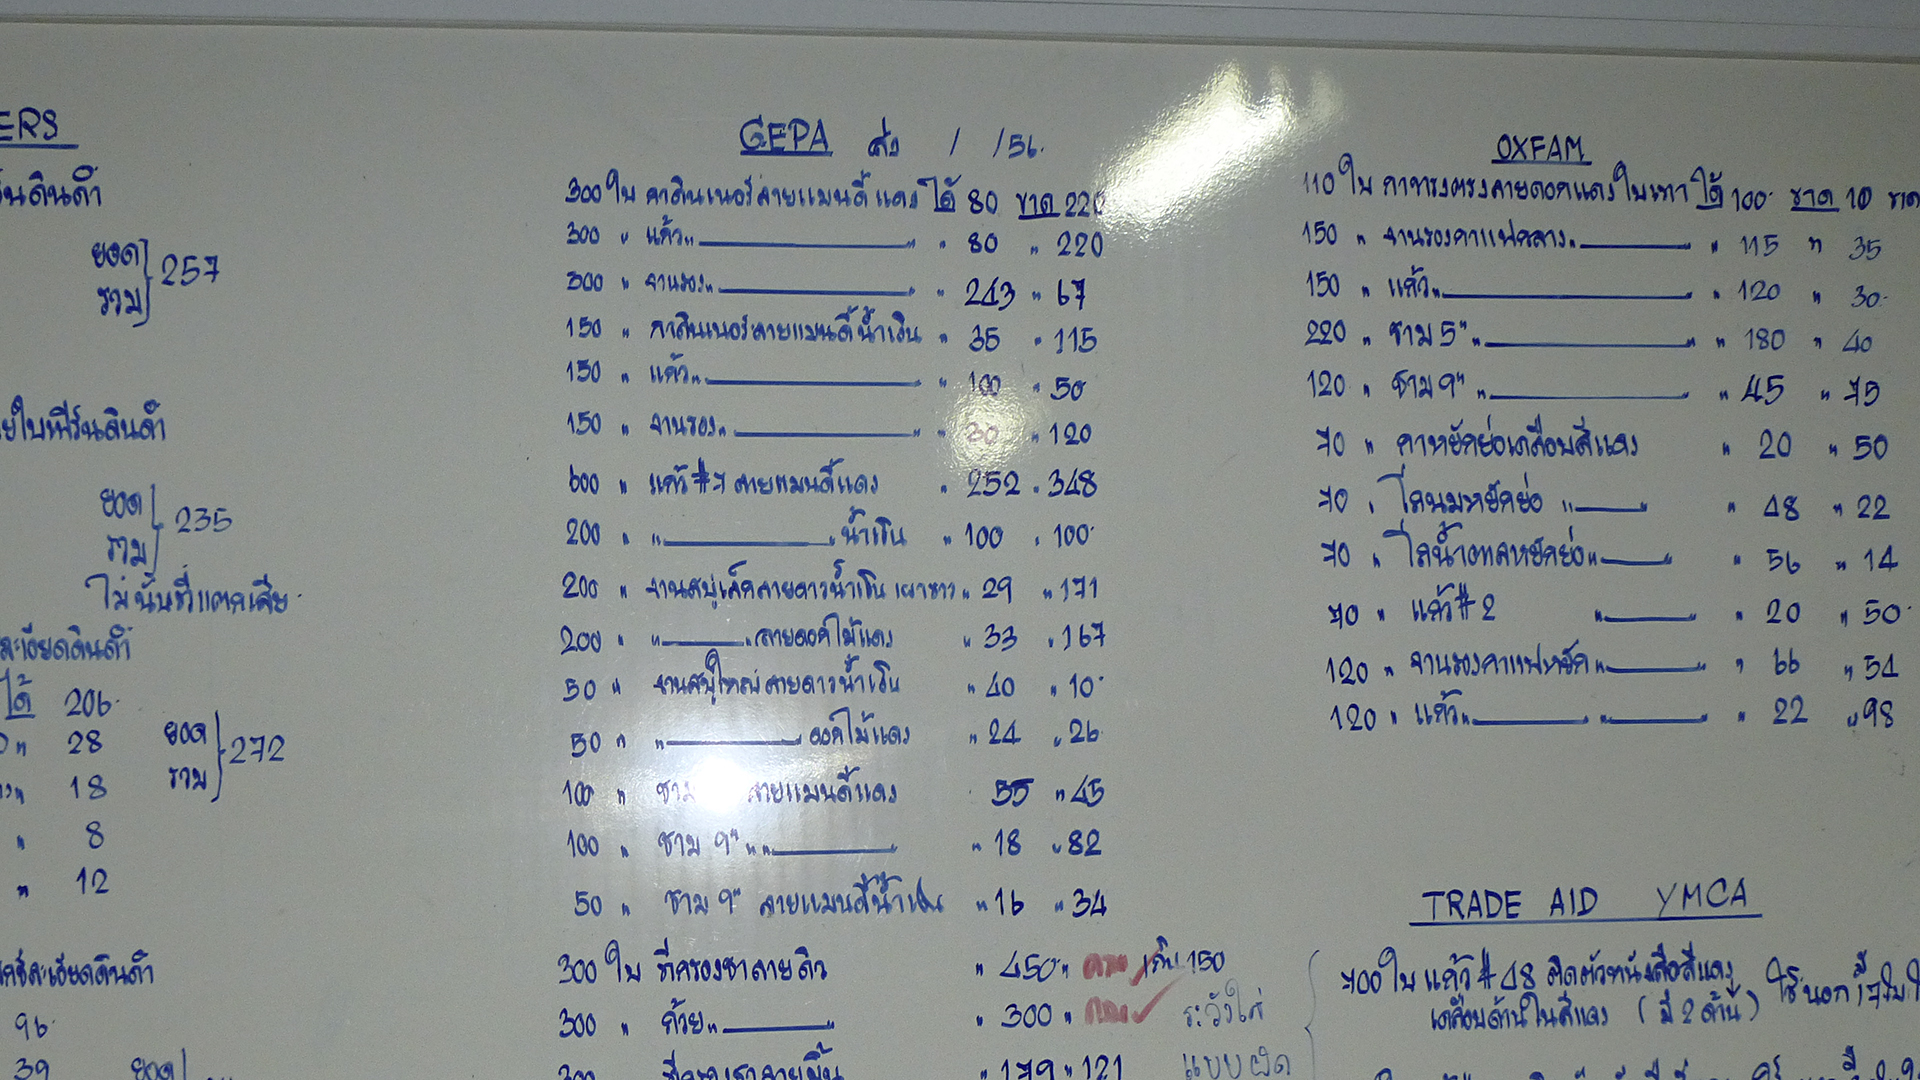 ERS
ดินดำ
ยอด
รวม 257
ใบเฟิร์นดินดำ
ยอด
รวม 235
ไม่นับที่แตกเสีย
ละเอียดดินดำ
ได้ 206
" 28
" 18
ยอด
รวม 272
" 8
" 12
ละเอียดดินดำ
96
39 ยอด
GEPA ส่ง / /56.
300 ใบ กาดินเนอร์ลายแมนดี้แดง ได้ 80 ขาด 220
300 " แก้ว " " " 80 " 220
300 " จานรอง " " " 243 " 67
150 " กาดินเนอร์ลายแมนดี้น้ำเงิน " 35 " 115
150 " แก้ว " " " 100 " 50
150 " จานรอง " " " 30 " 120
600 " แก้ว #7 ลายแมนดี้แดง " 252 " 348
200 " " " น้ำเงิน " 100 " 100
200 " จานสบู่เล็กลายดาวน้ำเงิน เผาขาว " 29 " 171
200 " " " ลายดอกไม้แดง " 33 " 167
50 " จานสบู่ใหญ่ลายดาวน้ำเงิน " 40 " 10
50 " " ดอกไม้แดง " 24 " 26
100 " ชาม ลายแมนดี้แดง 55 " 45
100 " ชาม 9" " " " " 18 " 82
50 " ชาม 9" ลายแมนดี้น้ำเงิน " 16 " 34
300 ใบ ที่กรองชาลายดิว " 450 " ครบ เกิน 150
300 " ถ้วย " " " 300 " ครบ ระวังใส่
300 ที่กรองชาลาย " 179 " 121 แบบผิด
OXFAM
110 ใบ กาทรงตรงลายดอกแดงใบเทา ได้ 100 ขาด 10 ขาด
150 " จานรองกาแฟกลาง " " " 115 " 35
150 " แก้ว " " " 120 " 30
220 " ชาม 5" " " " 180 " 40
120 " ชาม 9" " " " 45 " 75
70 " กาหยักย่อเคลือบสีแดง " 20 " 50
70 " โถนมหยักย่อ " " " 48 " 22
70 " โถน้ำตาลหยักย่อ " " " 56 " 14
70 " แก้ว #2 " " " 20 " 50
120 " จานรองกาแฟหยัก " " " 66 " 54
120 " แก้ว " " " " 22 " 98
TRADE AID YMCA
700 ใบ แก้ว #48 ติดตัวหนังสือสีแดง
เคลือบด้านในสีแดง (มี 2 ด้าน)